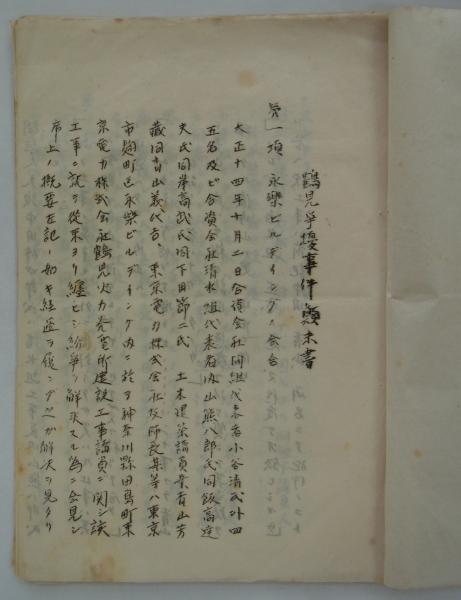 鶴見争擾事件顛末書
第一項 永樂ビルデイングノ会合
大正十四年十月二日合資会社間組代表者小谷清氏外四
五名及ビ合資会社清水組代表者内山熊八郎氏同飯高
夫氏同峯高武氏同下田節二氏 土木建築請負業青山芳
藏同青山義代吉、東京電力株式会社技師長某等ハ東京
市麹町区永樂ビルデイング内ニ於テ神奈川縣田島町東
京電力株式会社鶴見火力発電所建設工事請負ニ関シ該
工事ニ就テ從来ヨリ纏ヒシ紛争ヲ解決スル為ニ会見シ
席上ノ概要左記ノ如キ経過ヲ後シ之カ解決ヲ見タリ